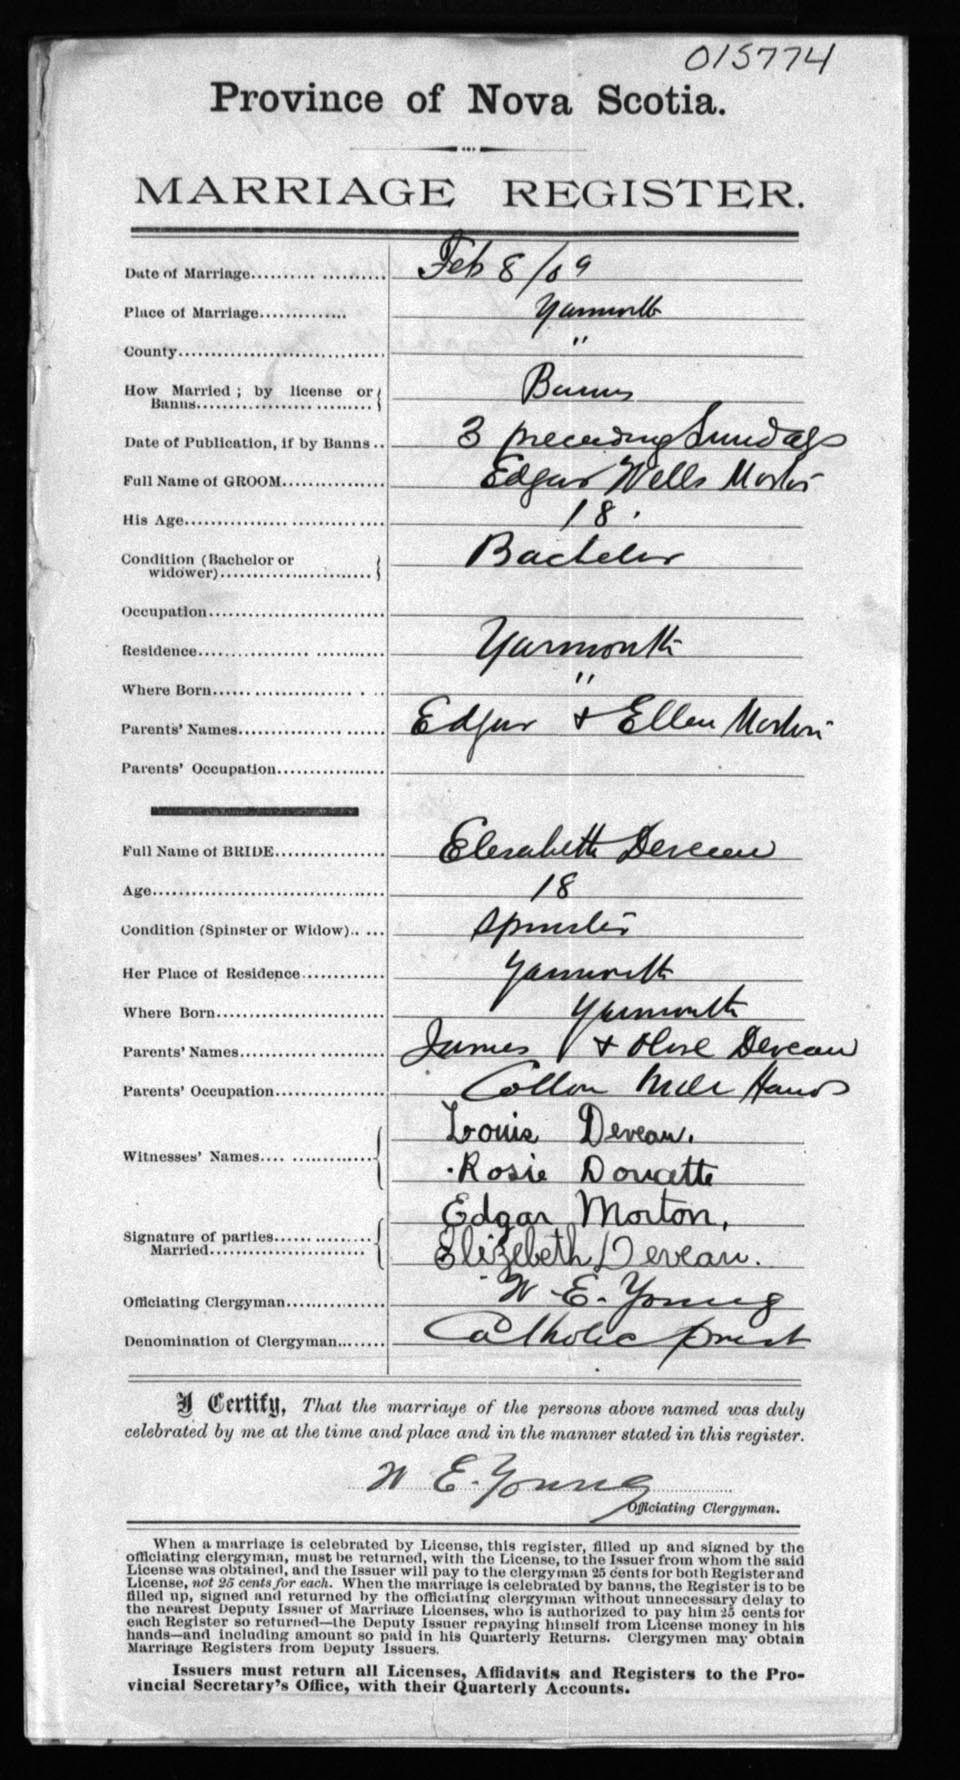 015774
Province of Nova Scotia.
MARRIAGE REGISTER.
Date of Marriage.......... ........... Feb 8/09
Place of Marriage.............. Yarmouth
County................................ "
How Married ; by license or
Banns................... .......... Banns
Date of Publication, if by Banns .. 3 preceeding Sundays
Full Name of GROOM................ Edgar Wells Morton
His Age................ ................ 18.
Condition (Bachelor or
widower)........................... Bachelor
Occupation...........................
Residence................. ........... Yarmouth
Where Born...... ............... . .. "
Parents' Names............... ...... Edgar & Ellen Morton
Parents' Occupation.................
Full Name of BRIDE................ Elesabeth Deveau
Age.................................... 18
Condition (Spinster or Widow).. ... Spinster
Her Place of Residence............. Yarmouth
Where Born......................... Yarmouth
Parents' Names........... .......... James & Olive Deveau
Parents' Occupation................ Cotton Mill Hands
Witnesses' Names.... ............. Louis Deveau.
Rosie Doucette
Edgar Morton,
Signature of parties...... .........
Married........................ Elizebeth Deveau.
Officiating Clergyman............... W. E. Young
Denomination of Clergyman........ Catholic priest
I Certify, That the marriage of the persons above named was duly
celebrated by me at the time and place and in the manner stated in this register.
W E. Young
Officiating Clergyman.
When a marriage is celebrated by License, this register, filled up and signed by the
officiating clergyman, must be returned, with the License, to the Issuer from whom the said
License was obtained, and the Issuer will pay to the clergyman 25 cents for both Register and
License, not 25 cents for each. When the marriage is celebrated by banns, the Register is to be
filled up, signed and returned by the officiating clergyman without unnecessary delay to
the nearest Deputy Issuer of Marriage Licenses, who is authorized to pay him 25 cents for
each Register so returned—the Deputy Issuer repaying himself from License money in his
hands—and including amount so paid in his Quarterly Returns. Clergymen may obtain
Marriage Registers from Deputy Issuers.
Issuers must return all Licenses, Affidavits and Registers to the Pro-
vincial Secretary's Office, with their Quarterly Accounts.